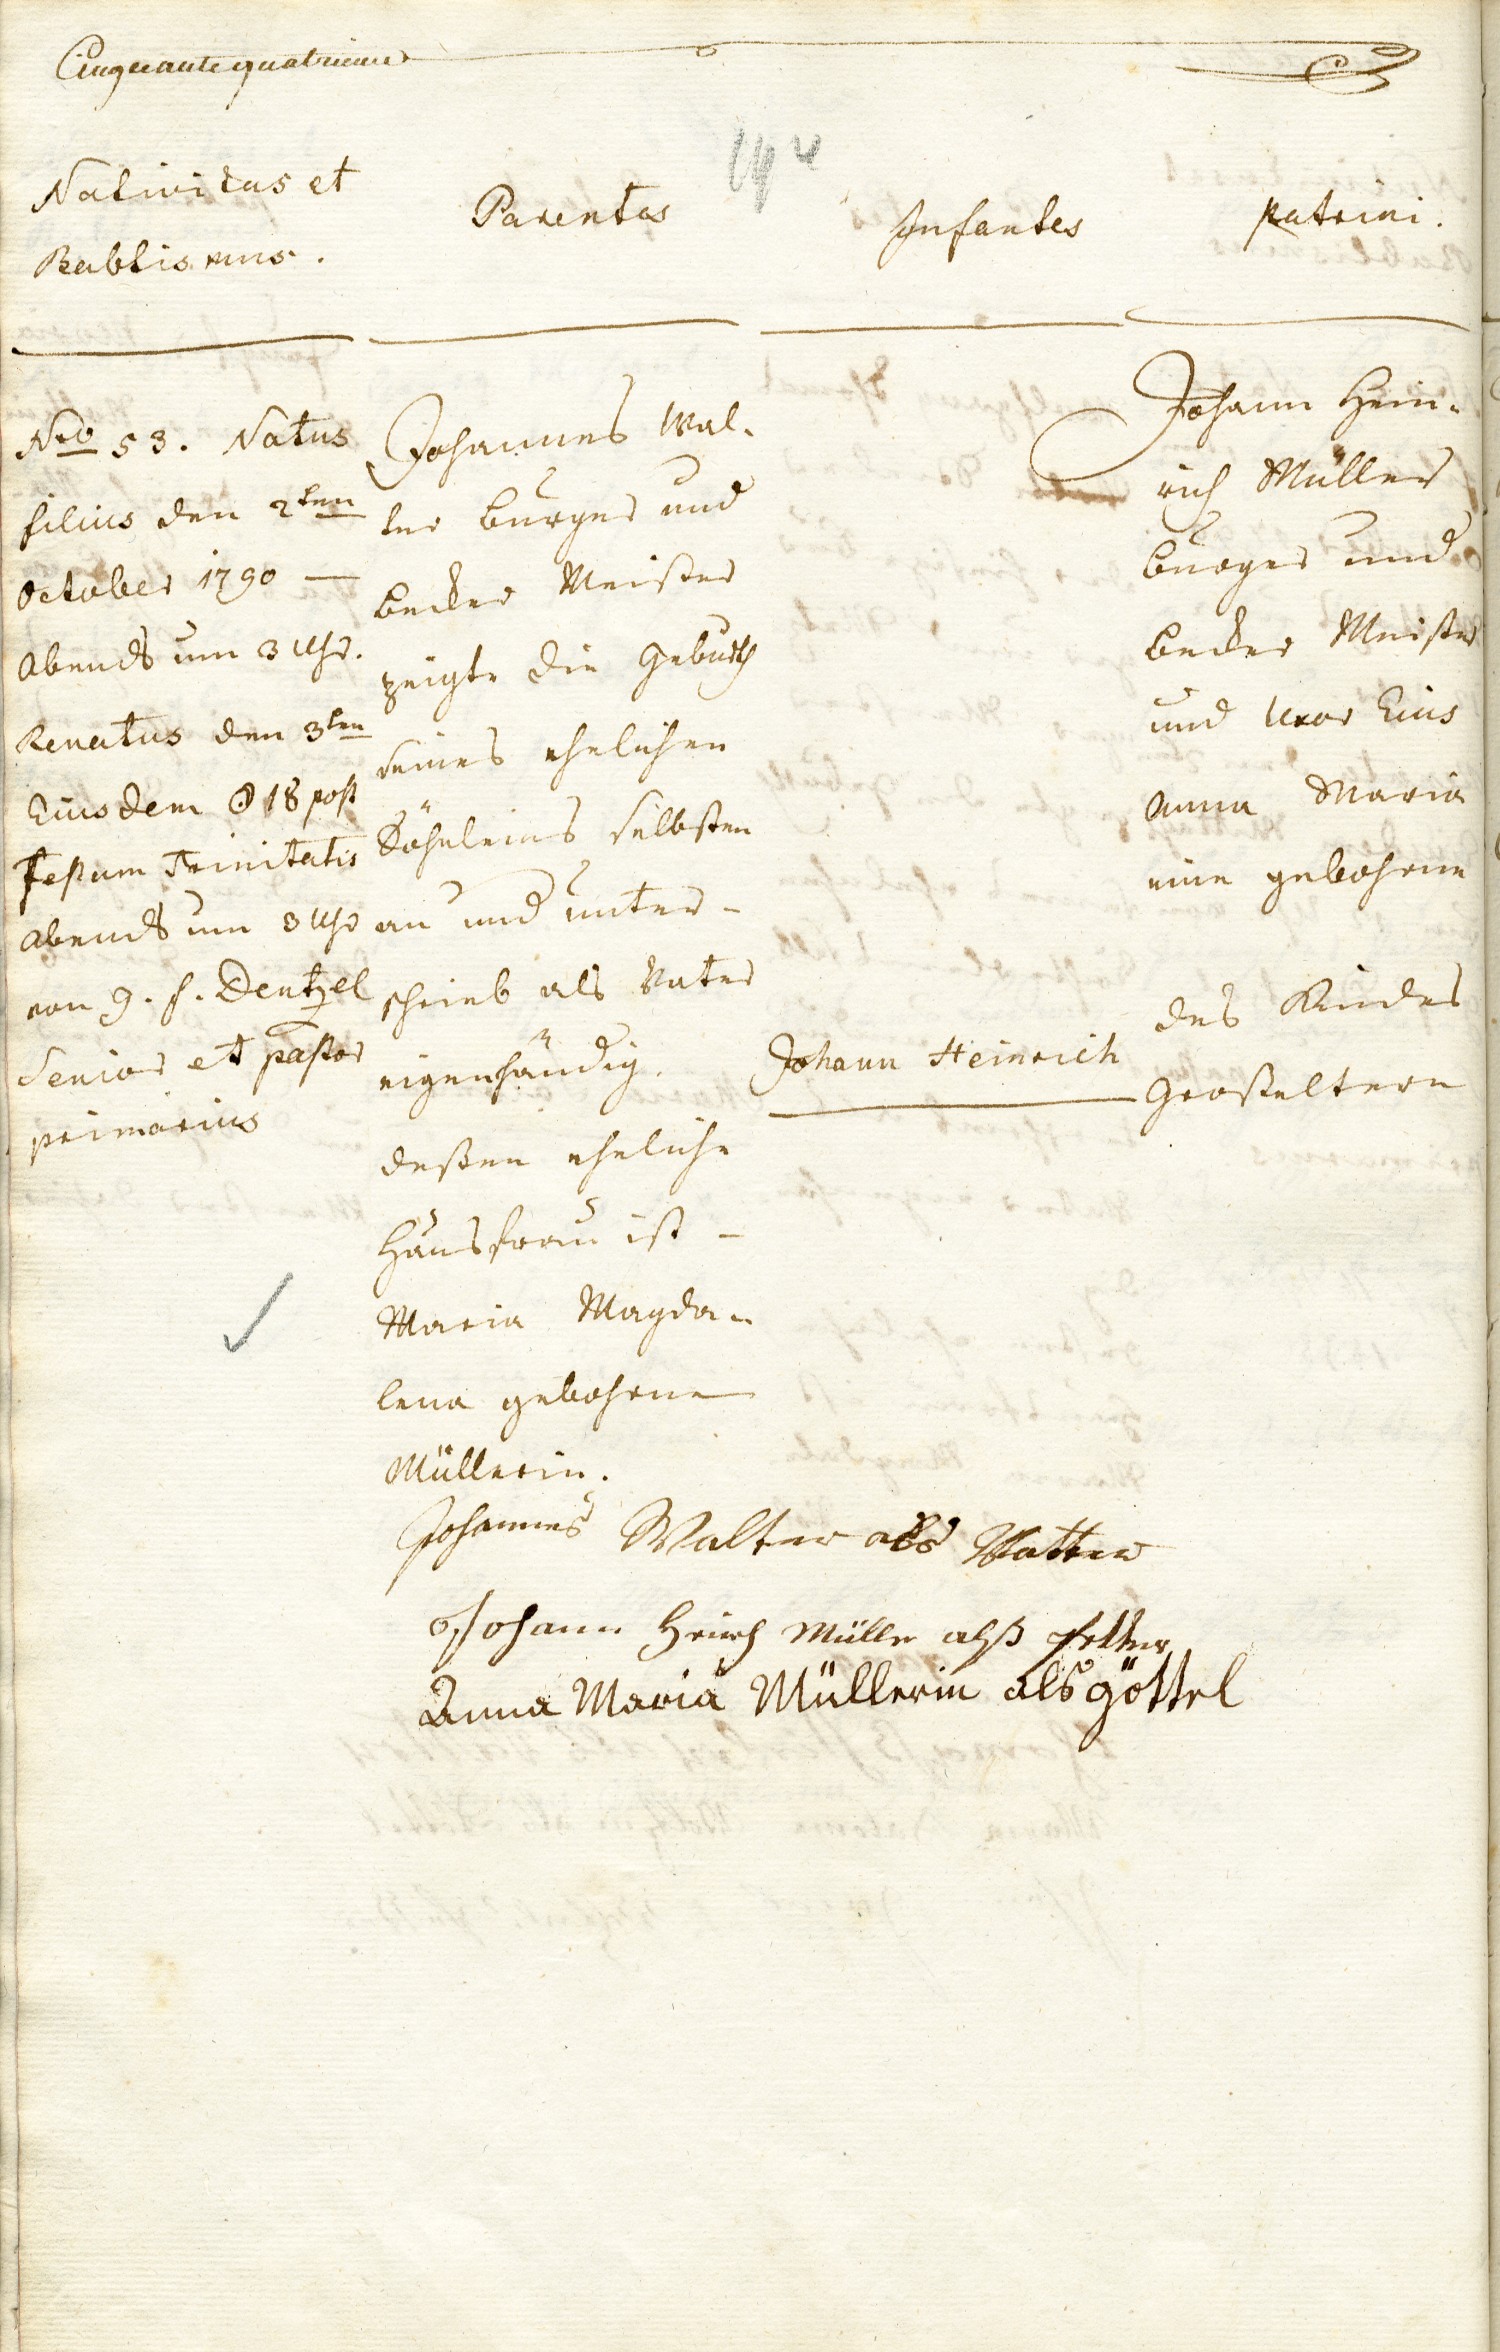 Cinquantequatrieme
Nativitas et
Babtismus.
Parentes
Infantes
patrini.
Nro 53. Natus
filius den 2ten
October 1790 —
Abends um 3 Uhr.
Renatus den 3ten
Eiusdem ☉ 18 post
Festum Trinitatis
abends um 3 Uhr
von g. f. Dentzel
Senior et pastor
primarius
Johannes Wal-
ter burger und
becker Meister
zeigte die Geburth
seines ehelichen
Söhnleins selbsten
an und unter-
schrieb als Vater
eigenhändig.
deßen eheliche
Hausfrau ist -
Maria Magda-
lena gebohrne
Müllerin.
Johann Heinrich
Johann Hein-
rich Müller
burger und
becker Meister
und Uxor Eius
Anna Maria
eine gebohrne
des Kindes
Großeltern
Johannes Walter als Vatter
Johann Heinrh Müller alß Petter
Anna Maria Müllerin als göttel